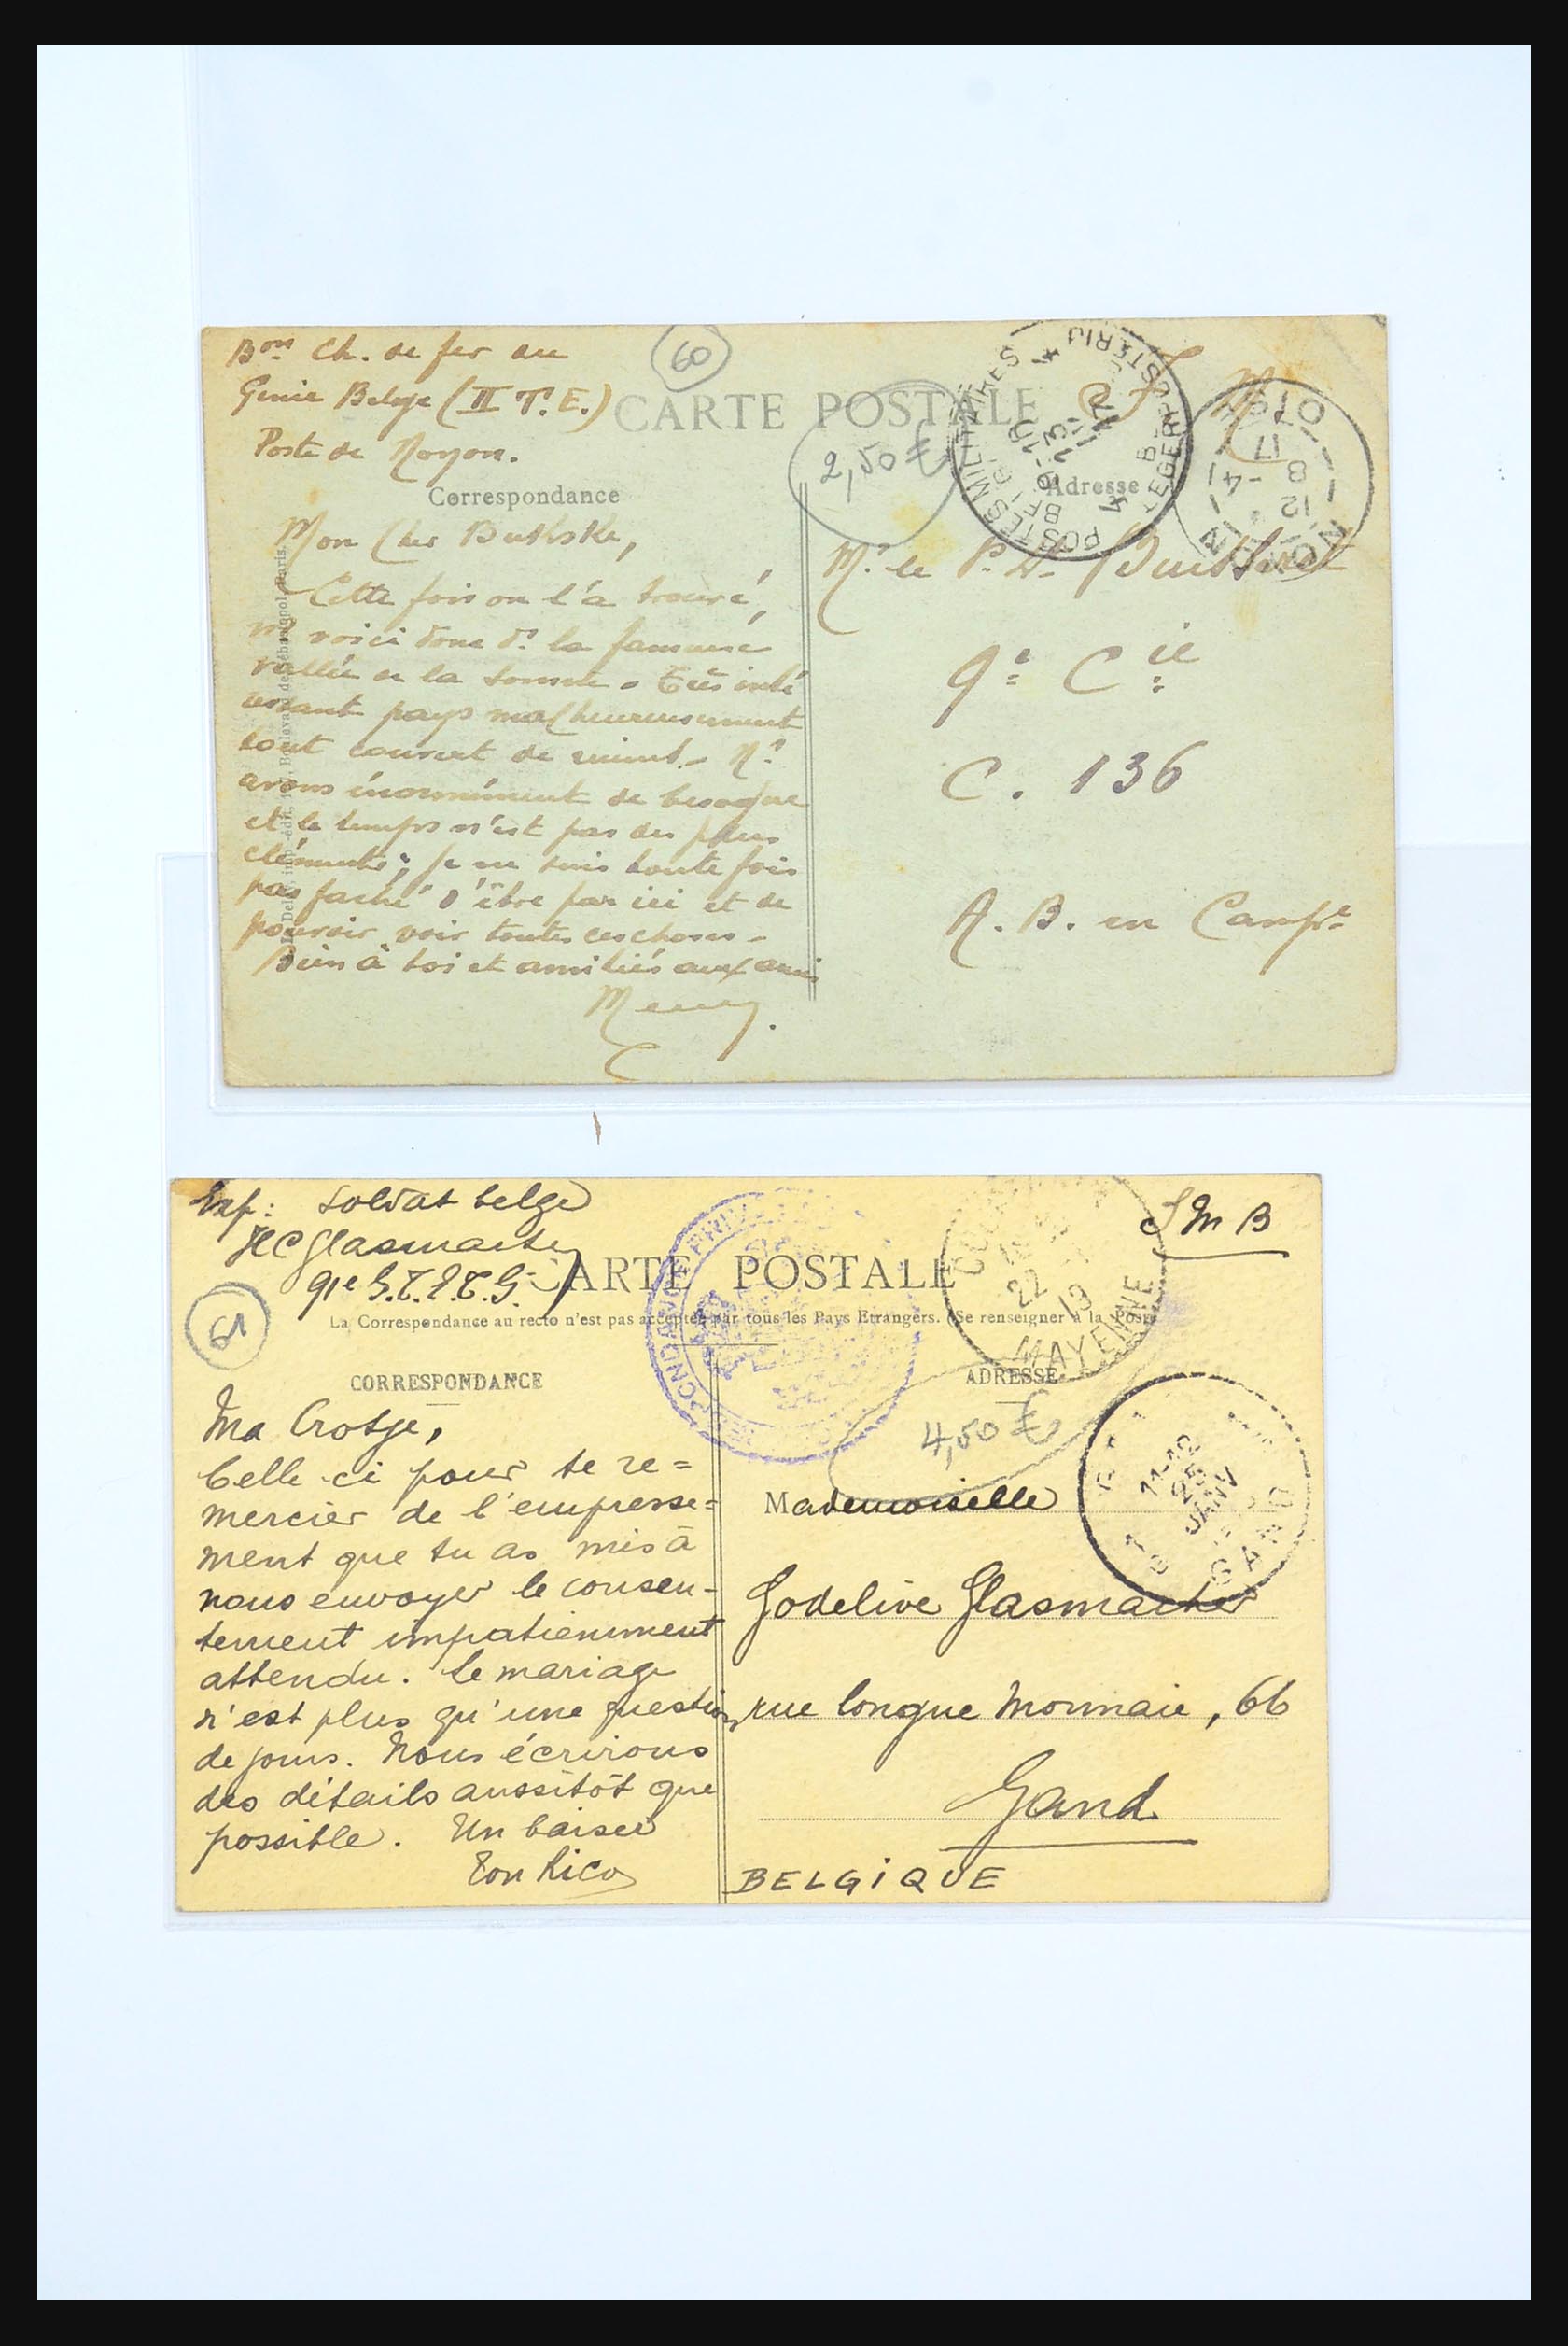 Bon Ch. de fer du
Génie Belge (II T.E.)
Poste de Noyon.
60
CARTE POSTALE
S M
2,50 €
POSTES MILITAIRES
LEGERPOSTERIJ
NOYON
OISE
12
8 -4
17
Correspondance
Adresse
Mon Cher
Cette fois on l'a trouvé,
me voici donc ds la fameuse
vallée de la Somme. Très inté
ressant pays malheureusement
tout couvert de ruines. Ns
avons énormément de besogne
et le temps n'est pas des plus
cléments; je ne suis toute fois
pas faché d'être par ici et de
pouvoir voir toutes ces choses.
Bien à toi et amitiés aux amis
Mr le
9e Cie
C. 136
A. B. en Campe
Exp: Soldat belge
Glasmacher
91e S.T.E.T.G.
61
CARTE POSTALE
S M B
La Correspondance au recto n'est pas acceptée par tous les Pays Etrangers. (Se renseigner à la Poste
MAYENNE
22
19
CORRESPONDANCE
ADRESSE
4,50 €
11-12
25
JANV
GAND
Ma Crotje,
Celle-ci pour te re=
mercier de l'empresse=
ment que tu as mis à
nous envoyer le consen-
tement impatiemment
attendu. Le mariage
n'est plus qu'une question
de jours. Nous écrirons
des détails aussitôt que
possible. Un baiser
Ton Rico
Mademoiselle
Godelive Glasmacher
rue longue Monnaie, 66
Gand
BELGIQUE